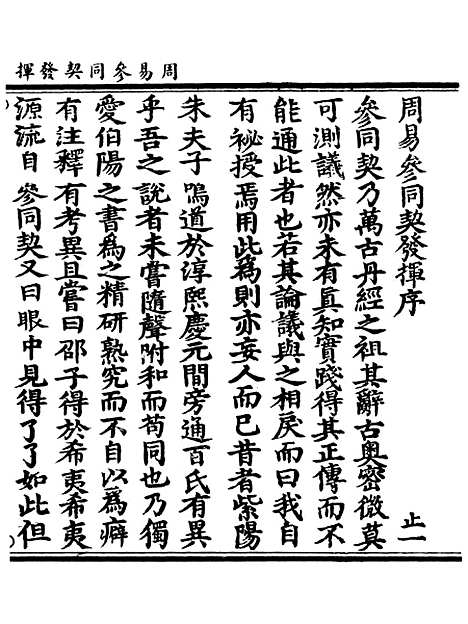 周易參同契發揮
周易參同契發揮序
止一
參同契乃萬古丹經之祖其辭古奧密微莫
可測議然亦未有眞知實踐得其正傳而不
能通此者也若其論議與之相戾而曰我自
有祕授焉用此爲則亦妄人而已昔者紫陽
朱夫子鳴道於淳熙慶元間旁通百氏有異
乎吾之說者未嘗隨聲附和而苟同也乃獨
愛伯陽之書爲之精研熟究而不自以爲癖
有注釋有考異且嘗曰邵子得於希夷希夷
源流自參同契又曰眼中見得了了如此但